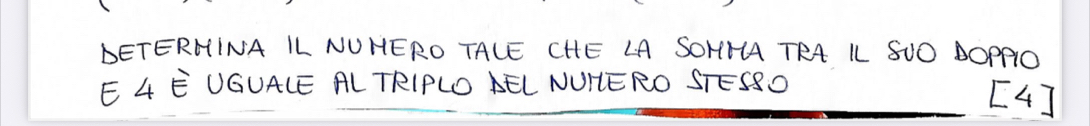 DETERMINA IL NUMERO TALE CHE LA SOMMA TRA IL SUO DOPPIO
E 4 È UGUALE AL TRIPLO DEL NUMERO STESSO [4]